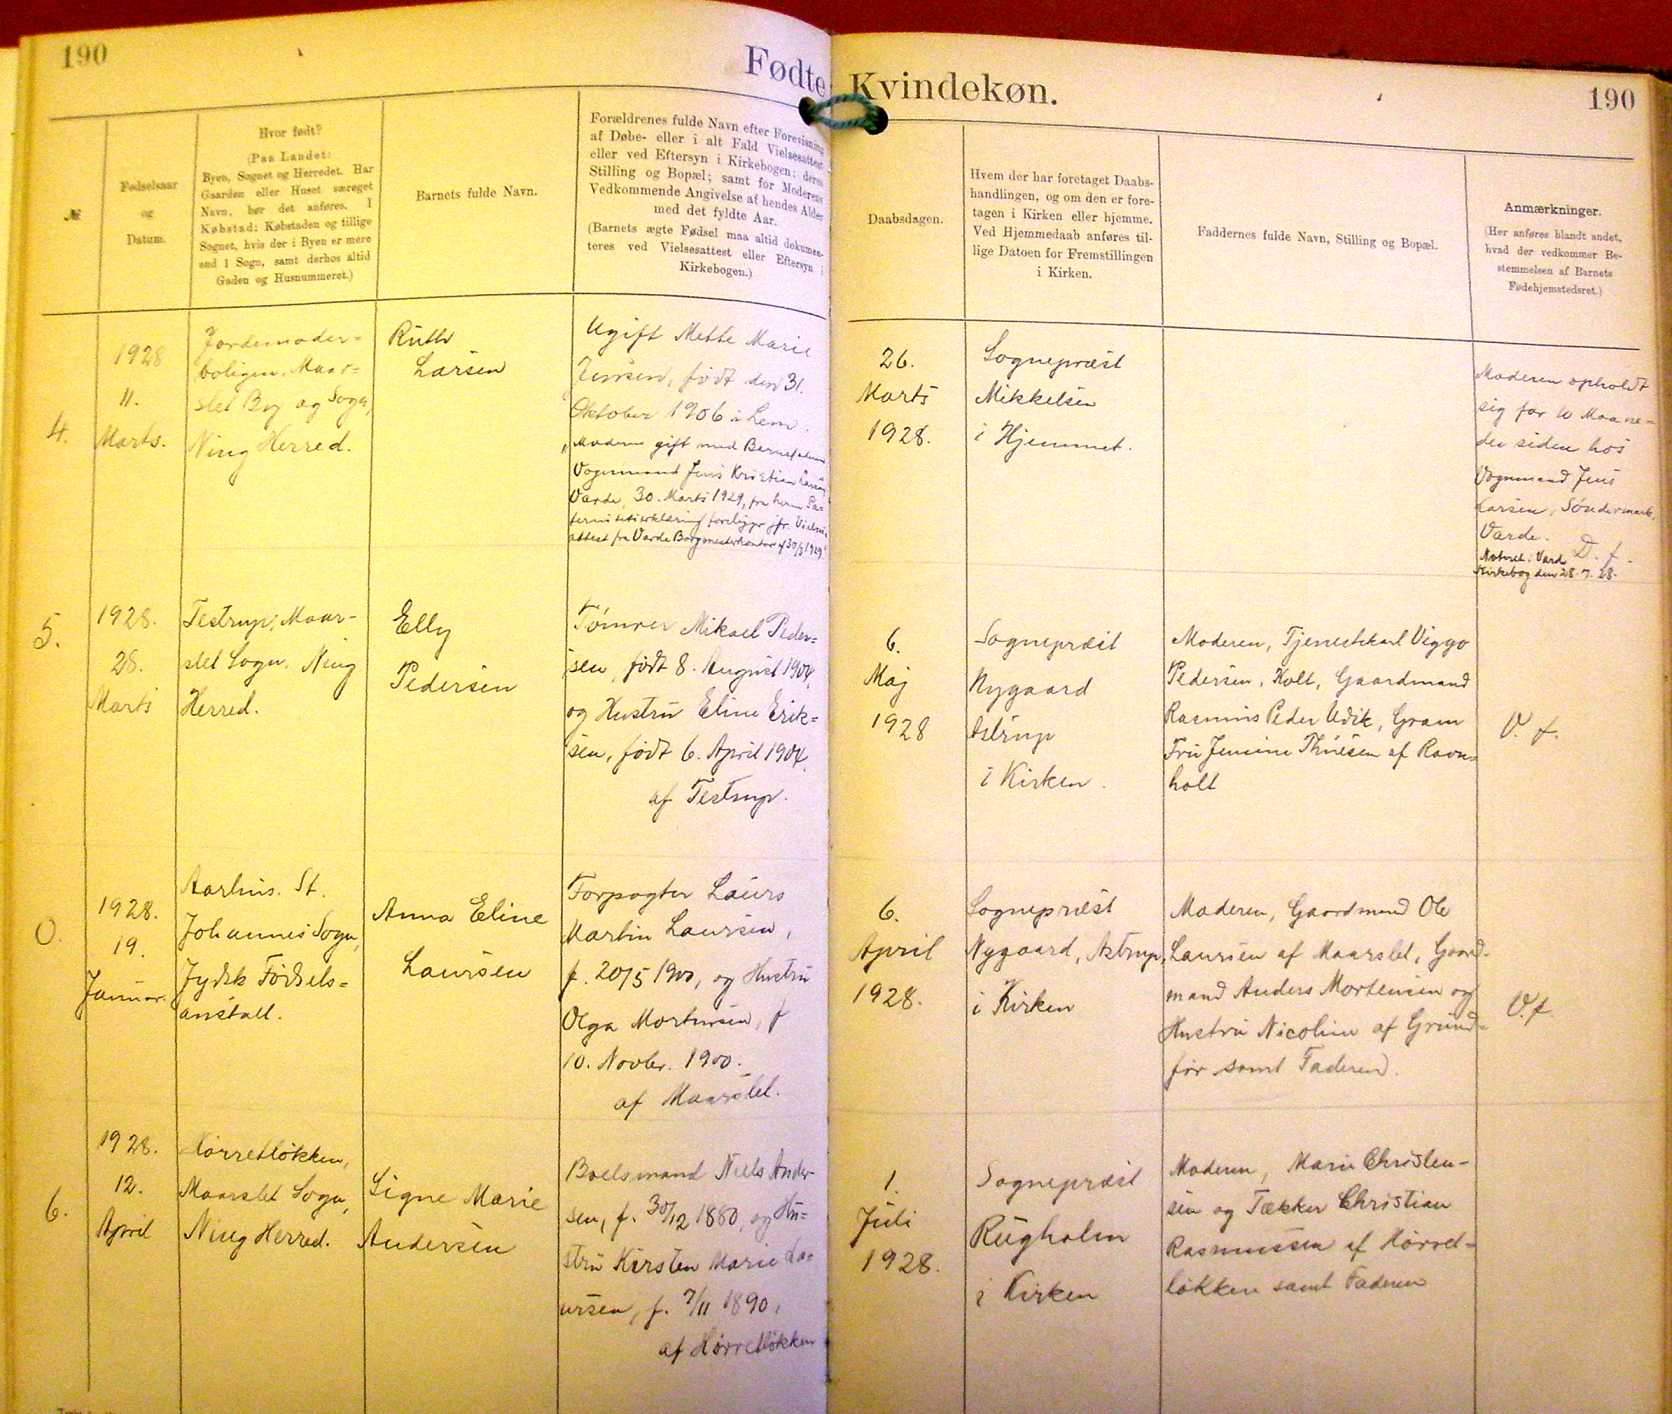 190
Fødte Kvindekøn.
190
№
Fødselsaar
og
Datum.
Hvor født?
(Paa Landet:
Byen, Sognet og Herredet. Har
Gaarden eller Huset særeget
Navn, bør det anføres. I
Købstad: Købstaden og tillige
Sognet, hvis der i Byen er mere
end 1 Sogn, samt derhos altid
Gaden og Husnummeret.)
Barnets fulde Navn.
Forældrenes fulde Navn efter Forevisning
af Døbe- eller i alt Fald Vielsesattest
eller ved Eftersyn i Kirkebogen; deres
Stilling og Bopæl; samt for Moderens
Vedkommende Angivelse af hendes Alder
med det fyldte Aar.
(Barnets ægte Fødsel maa altid dokumen-
teres ved Vielsesattest eller Eftersyn i
Kirkebogen.)
Daabsdagen.
Hvem der har foretaget Daabs-
handlingen, og om den er fore-
tagen i Kirken eller hjemme.
Ved Hjemmedaab anføres til-
lige Datoen for Fremstillingen
i Kirken.
Faddernes fulde Navn, Stilling og Bopæl.
Anmærkninger.
(Her anføres blandt andet,
hvad der vedkommer Be-
stemmelsen af Barnets
Fødehjemstedsret.)
4.
1928
11.
Marts.
Jordemoder-
boligen, Maar-
slet By og Sogn,
Ning Herred.
Ruth
Larsen
Ugift Mette Marie
Jensen, født den 31.
Oktober 1906 i Lem.
Moderen gift med Barnefaderen
Vognmand Jens Kristian Larsen,
Varde, 30. Marts 1929, fra ham Pa-
ternitetserklæring foreligger jfr. Vielses-
attest fra Varde Borgmesterkontor af 30/3 1929
26.
Marts
1928.
Sognepræst
Mikkelsen
i Hjemmet.
Moderen opholdt
sig for 10 Maane-
der siden hos
Vognmand Jens
Larsen, Søndermark,
Varde. D. f.
Noteret i Varde
Kirkebog den 28.7.28.
5.
1928.
28.
Marts
Testrup, Maar-
slet Sogn, Ning
Herred.
Elly
Pedersen
Tømrer Mikael Peder-
sen, født 8. August 1904,
og Hustru Eline Erik-
sen, født 6. April 1904.
af Testrup.
6.
Maj
1928
Sognepræst
Nygaard
Astrup
i Kirken.
Moderen, Tjenestekarl Viggo
Pedersen, Holt, Gaardmand
Rasmus Peder Udik, Gram
Fru Jensine Thuesen af Ravns-
holt
V. f.
0.
1928.
19.
Januar.
Aarhus. St.
Johannes Sogn,
Jydsk Fødsels-
anstalt.
Anna Eline
Laursen
Forpagter Laurs
Martin Laursen,
f. 20/5 1900, og Hustru
Olga Mortensen, f
10. Novbr. 1900.
af Maarslet.
6.
April
1928.
Sognepræst
Nygaard, Astrup,
i Kirken
Moderen, Gaardmand Ole
Laursen af Maarslet, Gaard-
mand Anders Mortensen og
Hustru Nicoline af Grund-
før samt Faderen.
V. f.
6.
1928.
12.
April
Hørretløkken,
Maarslet Sogn,
Ning Herred.
Signe Marie
Andersen
Boelsmand Niels Ander-
sen, f. 30/12 1880, og Hu-
stru Kirsten Marie La-
ursen, f. 7/11 1890,
af Hørretløkken
1.
Juli
1928.
Sognepræst
Rugholm
i Kirken
Moderen, Marie Christen-
sen og Tækker Christian
Rasmussen af Hørret-
løkken samt Faderen